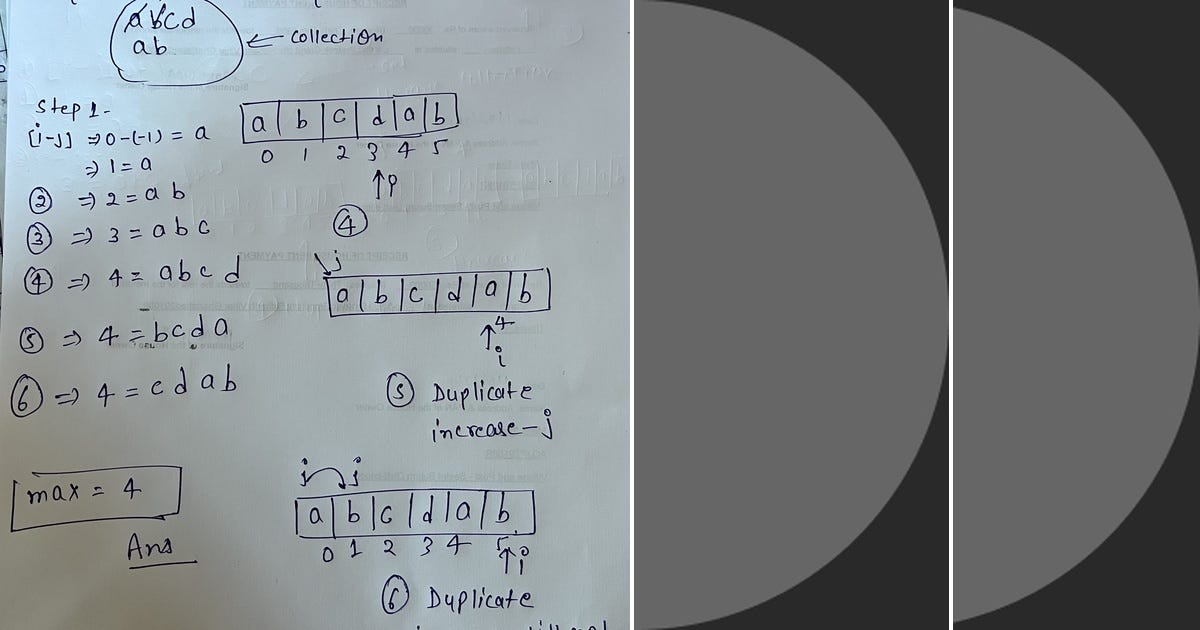 abcd
ab
← collection
Step 1-
[i-j] ⇒ 0-(-1) = a
⇒ 1 = a
② ⇒ 2 = a b
③ ⇒ 3 = a b c
④ ⇒ 4 = a b c d
⑤ ⇒ 4 = b c d a
⑥ ⇒ 4 = c d a b
max = 4
Ans
a | b | c | d | a | b
0 1 2 3 4 5
↑ i
④
j
a | b | c | d | a | b
↑ 4
i
⑤ Duplicate
increase - j
j j
a | b | c | d | a | b
0 1 2 3 4 5
↑ i
⑥ Duplicate